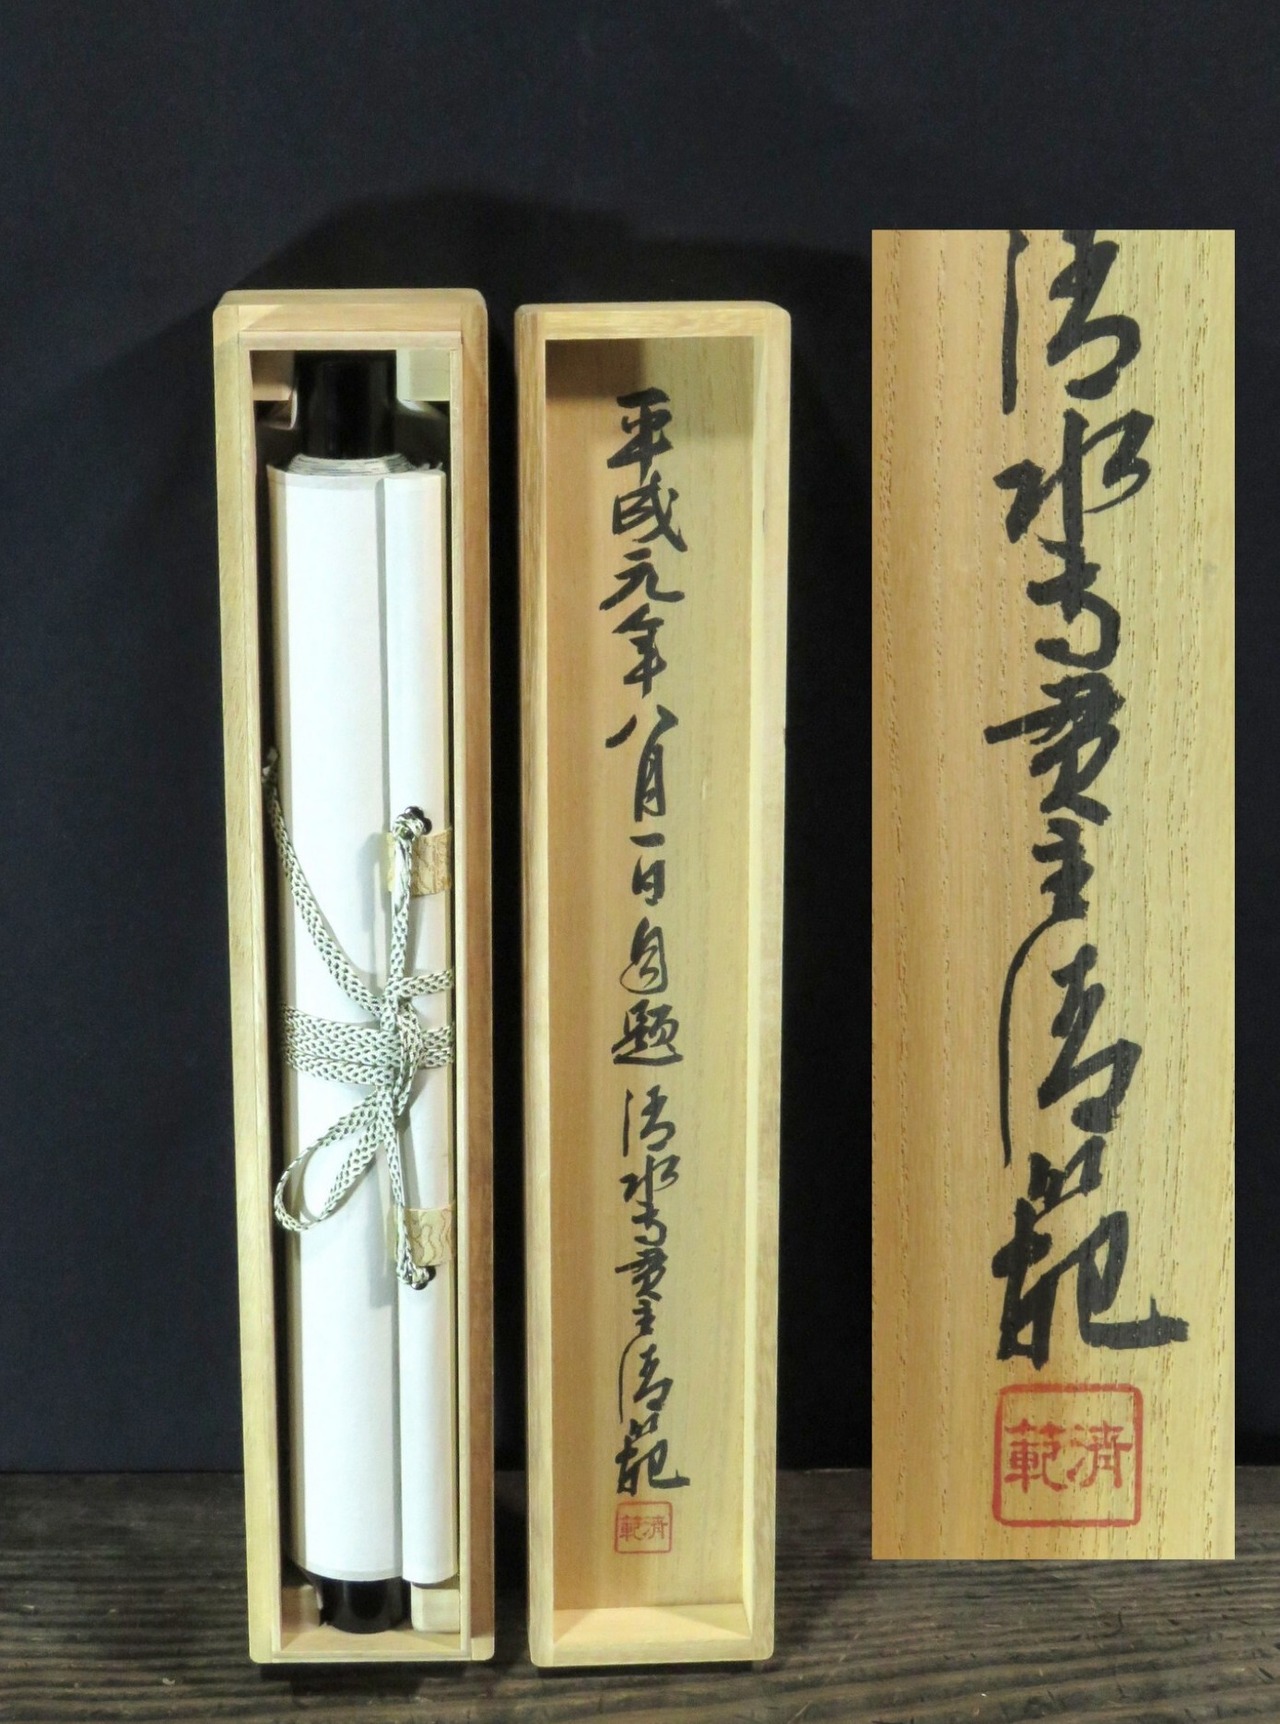 平成元年八月一日自題 清水寺貫主清範
清範
清水寺貫主清範
清範